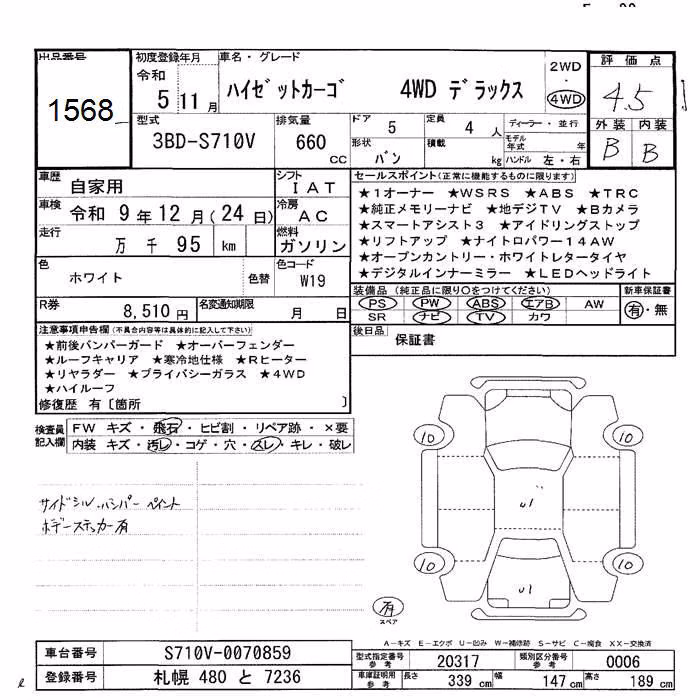 出品番号 初度登録年月 車名・グレード 2WD 評価点
令和 ・
1568 5 11月 ハイゼットカーゴ 4WD デラックス 4WD 4.5
型式 排気量 ドア 5 定員 4 人 ディーラー・並行 外装 内装
3BD-S710V 660 CC 形状 バン 積載 kg モデル年式 年 B B
ハンドル 左・右
車歴 自家用 シフト IAT セールスポイント(正常に機能するものに限ります)
車検 令和 9年 12月(24日) 冷房 AC ★1オーナー ★WSRS ★ABS ★TRC
走行 万 千 95 km 燃料 ガソリン ★純正メモリーナビ ★地デジTV ★Bカメラ
★スマートアシスト3 ★アイドリングストップ
★リフトアップ ★ナイトロパワー14AW
★オープンカントリー・ホワイトレタータイヤ
★デジタルインナーミラー ★LEDヘッドライト
色 ホワイト 色替 色コード W19
R券 8,510円 名変通知期限 月 日
装備品(純正品に限り○をつけてください) 新車保証書
PS PW ABS エアB AW 有・無
SR ナビ TV カワ
後日品 保証書
注意事項申告欄(不具合内容等は具体的に記入して下さい)
★前後バンパーガード ★オーバーフェンダー
★ルーフキャリア ★寒冷地仕様 ★Rヒーター
★リヤラダー ★プライバシーガラス ★4WD
★ハイルーフ
修復歴 有〔箇所 〕
検査員記入欄 FW キズ・飛石・ヒビ割・リペア跡・×要
内装 キズ・汚レ・コゲ・穴・スレ・キレ・破レ
サイドシル・バンパー ペイント
ボデーステッカー有
10 10
U1
10 10
U1
有
スペア
A-キズ E-エクボ U-凹み W-補修跡 S-サビ C-腐食 XX-交換済
車台番号 S710V-0070859 型式指定番号 参考 20317 類別区分番号 参考 0006
登録番号 札幌 480 と 7236 車庫証明用 参考 長さ 339 cm 幅 147 cm 高さ 189 cm